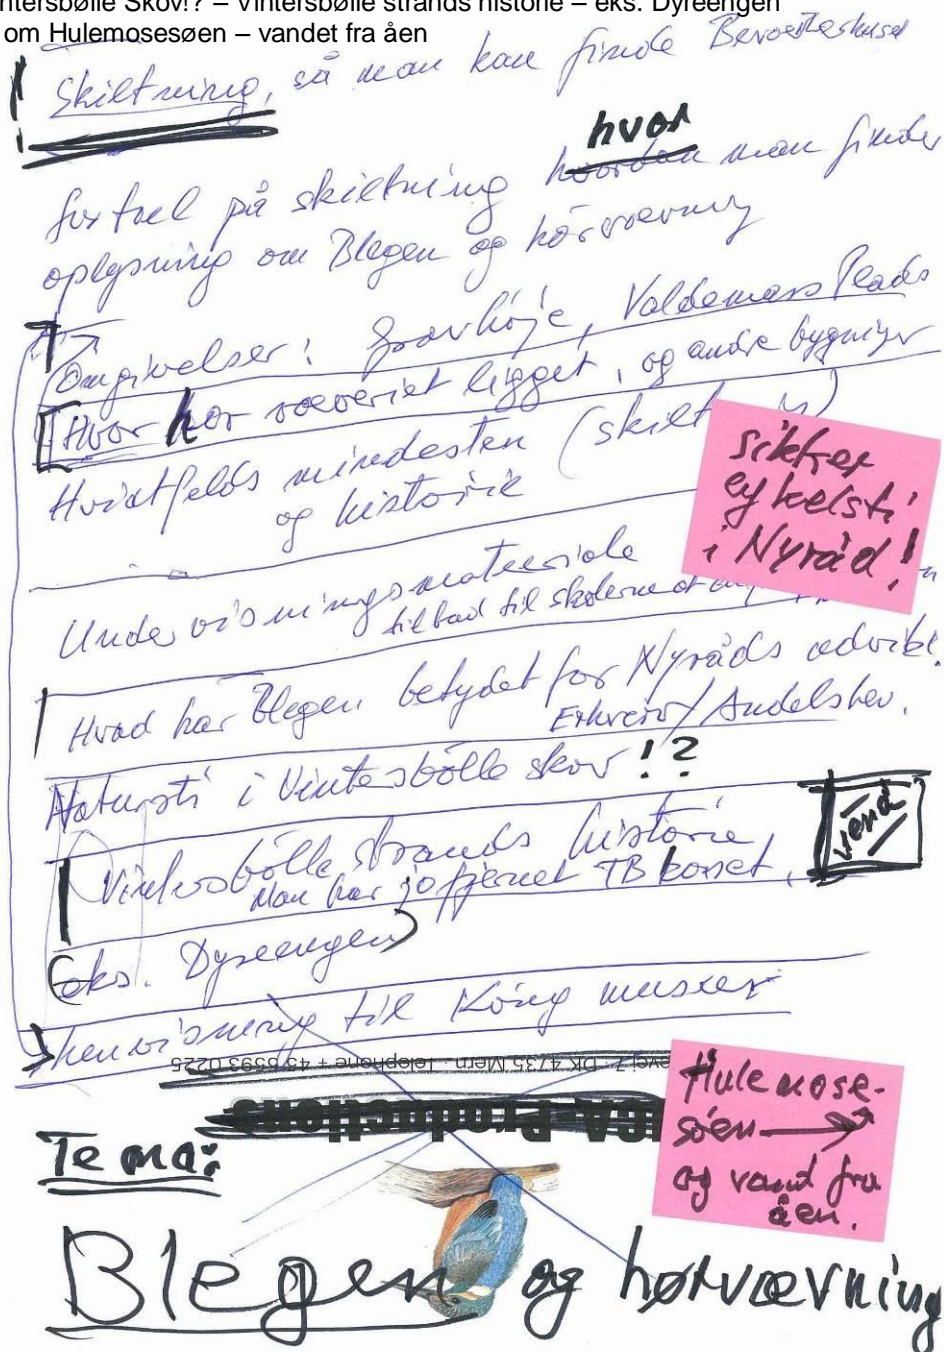 ntersbølle Skov!? – Vintersbølle strands historie – eks. Dyreengen
om Hulemosesøen – vandet fra åen
Skiltning, så man kan finde
hvor
fortæl på skiltning hvordan man finder
oplysning om Blegen og hørvævning
Omgivelser: Gravhøje, Valdemars Plads
Hvor har væveriet ligget, og andre bygninger
Hvidtfelds mindesten (skilt
og historie
sikker
cykelsti
i Nyråd!
Undervisningsmateriale
tilbud til skolerne
Hvad har Blegen betydet for Nyråds udvikl.
Erhverv/Andelsbev.
Natursti i Vintersbølle skov!?
Vintersbølle strands historie
Man har jo fjernet TB korset.
vend
(eks. Dyreengen)
henvisning til Köng museer
evej 7 DK 4735 Mern Telephone + 45 5593 0225
CA Productions
Hulemose-
søen
og vand fra
åen.
Tema:
Blegen og hørvævning